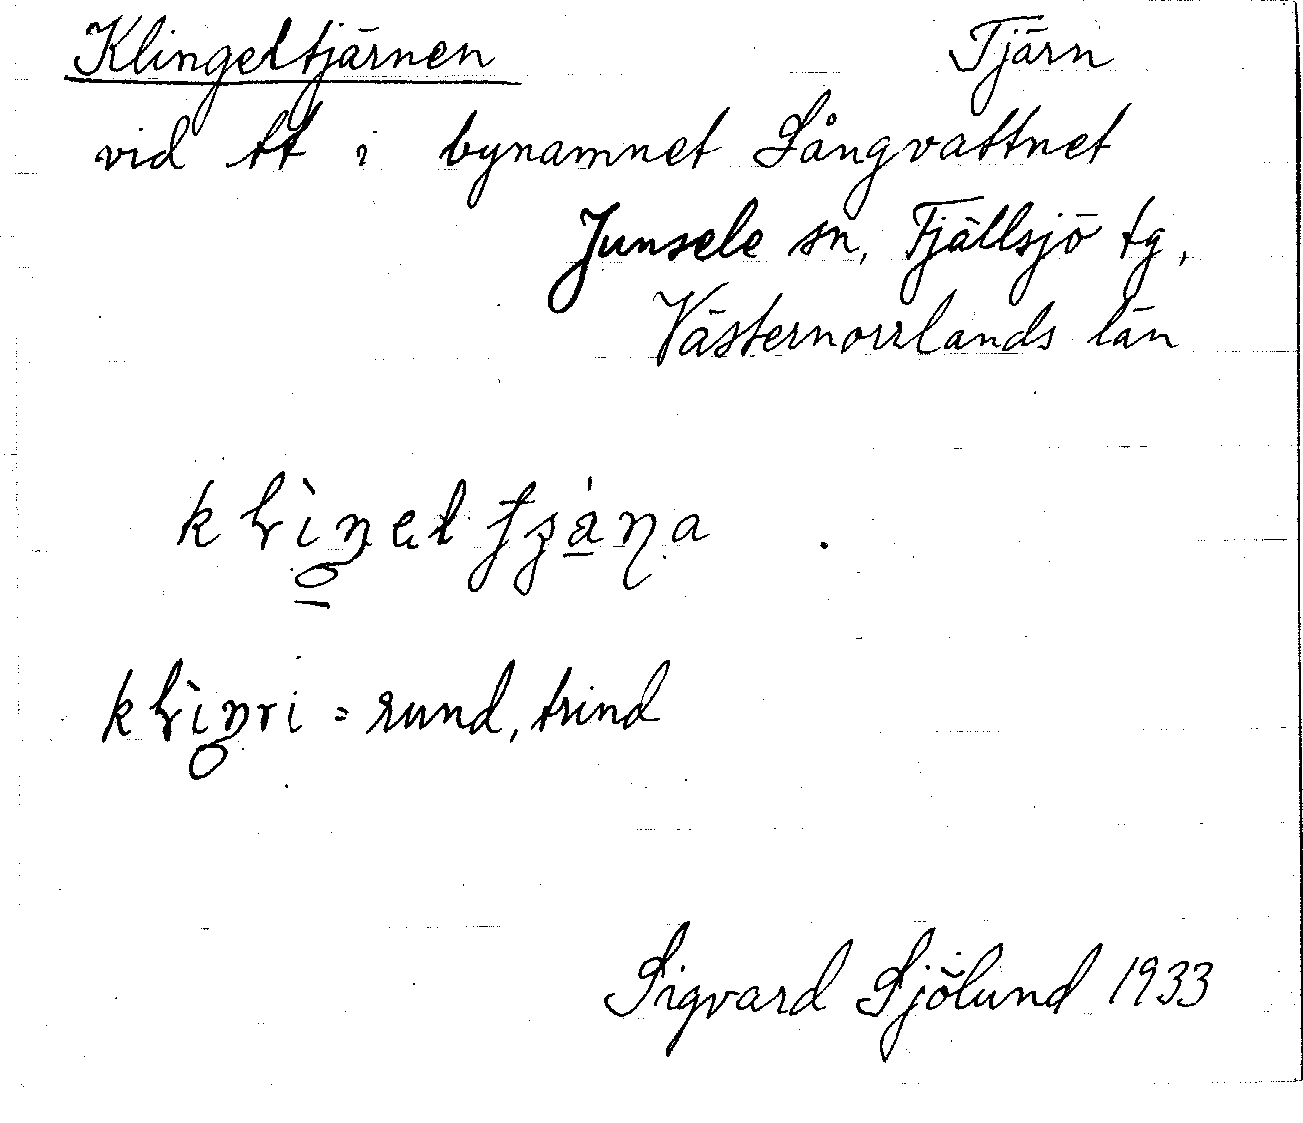 Klingeltjärnen Tjärn
vid tt i bynamnet Långvattnet
Junsele sn, Fjällsjö tg,
Västernorrlands län
= rund, trind
Sigvard Sjölund 1933